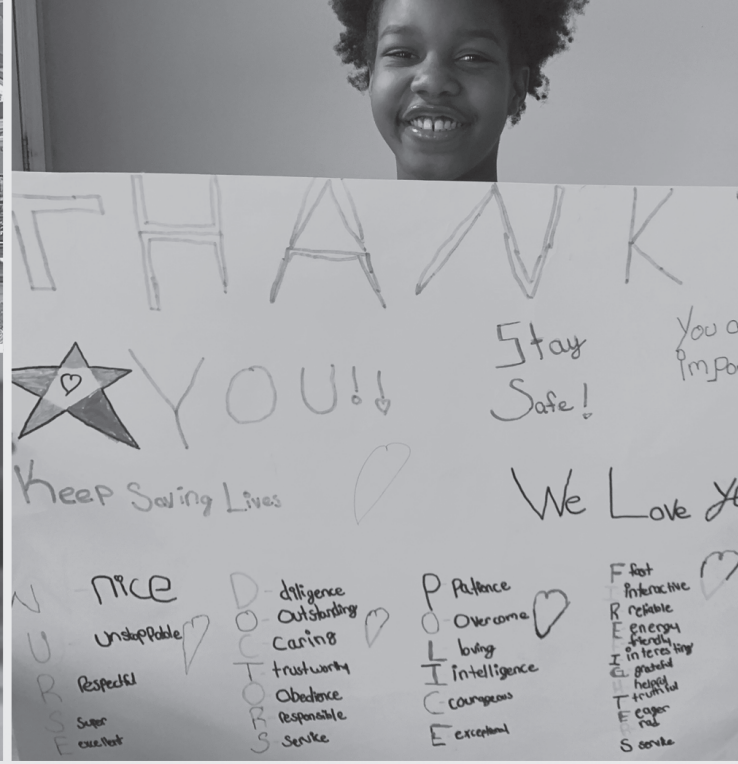 THANK
YOU!!
Stay
Safe!
You a
impo
Keep Saving Lives
We Love yo
N nice
U unstoppable
R Respectful
S Super
E Excellent
D diligence
O Outstanding
C Caring
T trustworthy
O Obedience
R Responsible
S Service
P Patience
O Overcome
L loving
I intelligence
C courageous
E exceptional
F fast
I interactive
R reliable
E energy
friendly
I interesting
G grateful
H helpful
T truthful
E eager
R rad
S service